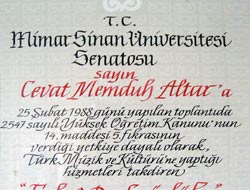 T.C.
Mimar Sinan Üniversitesi
Senatosu
sayın
Cevat Memduh Altar'a
25 Şubat 1988 günü yapılan toplantıda
2547 sayılı Yüksek Öğretim Kanunu'nun
14. maddesi 5. fıkrasının
verdiği yetkiye dayalı olarak,
Türk Müzik ve Kültürüne yaptığı
hizmetleri takdiren